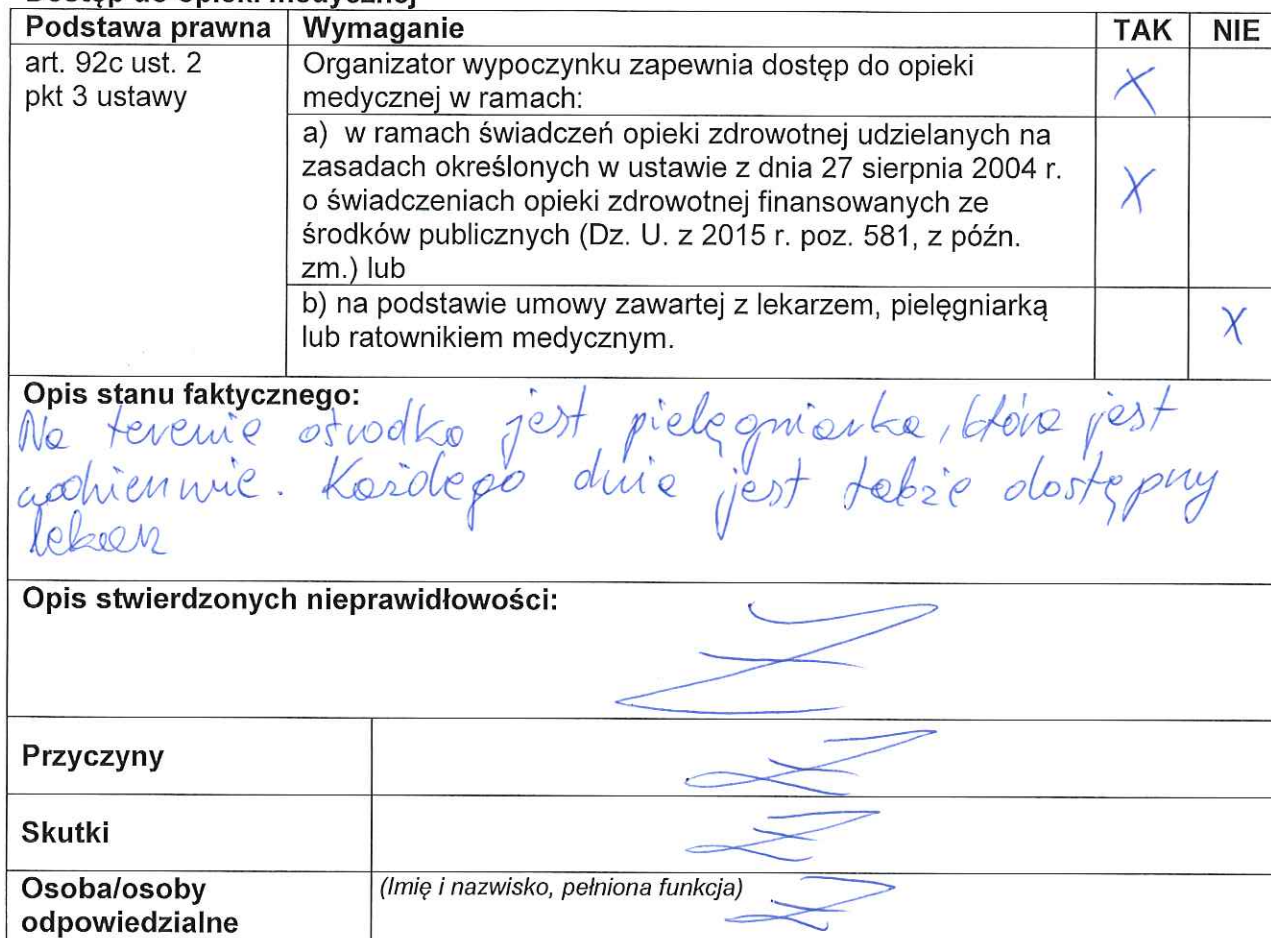 Dostęp do opieki medycznej
Podstawa prawna Wymaganie TAK NIE
art. 92c ust. 2
pkt 3 ustawy
Organizator wypoczynku zapewnia dostęp do opieki
medycznej w ramach: X
a) w ramach świadczeń opieki zdrowotnej udzielanych na
zasadach określonych w ustawie z dnia 27 sierpnia 2004 r.
o świadczeniach opieki zdrowotnej finansowanych ze X
środków publicznych (Dz. U. z 2015 r. poz. 581, z późn.
zm.) lub
b) na podstawie umowy zawartej z lekarzem, pielęgniarką
lub ratownikiem medycznym. X
Opis stanu faktycznego:
Na terenie ośrodka jest pielęgniarka, która jest
codziennie. Każdego dnia jest także dostępny
lekarz
Opis stwierdzonych nieprawidłowości:
Przyczyny
Skutki
Osoba/osoby
odpowiedzialne
(Imię i nazwisko, pełniona funkcja)